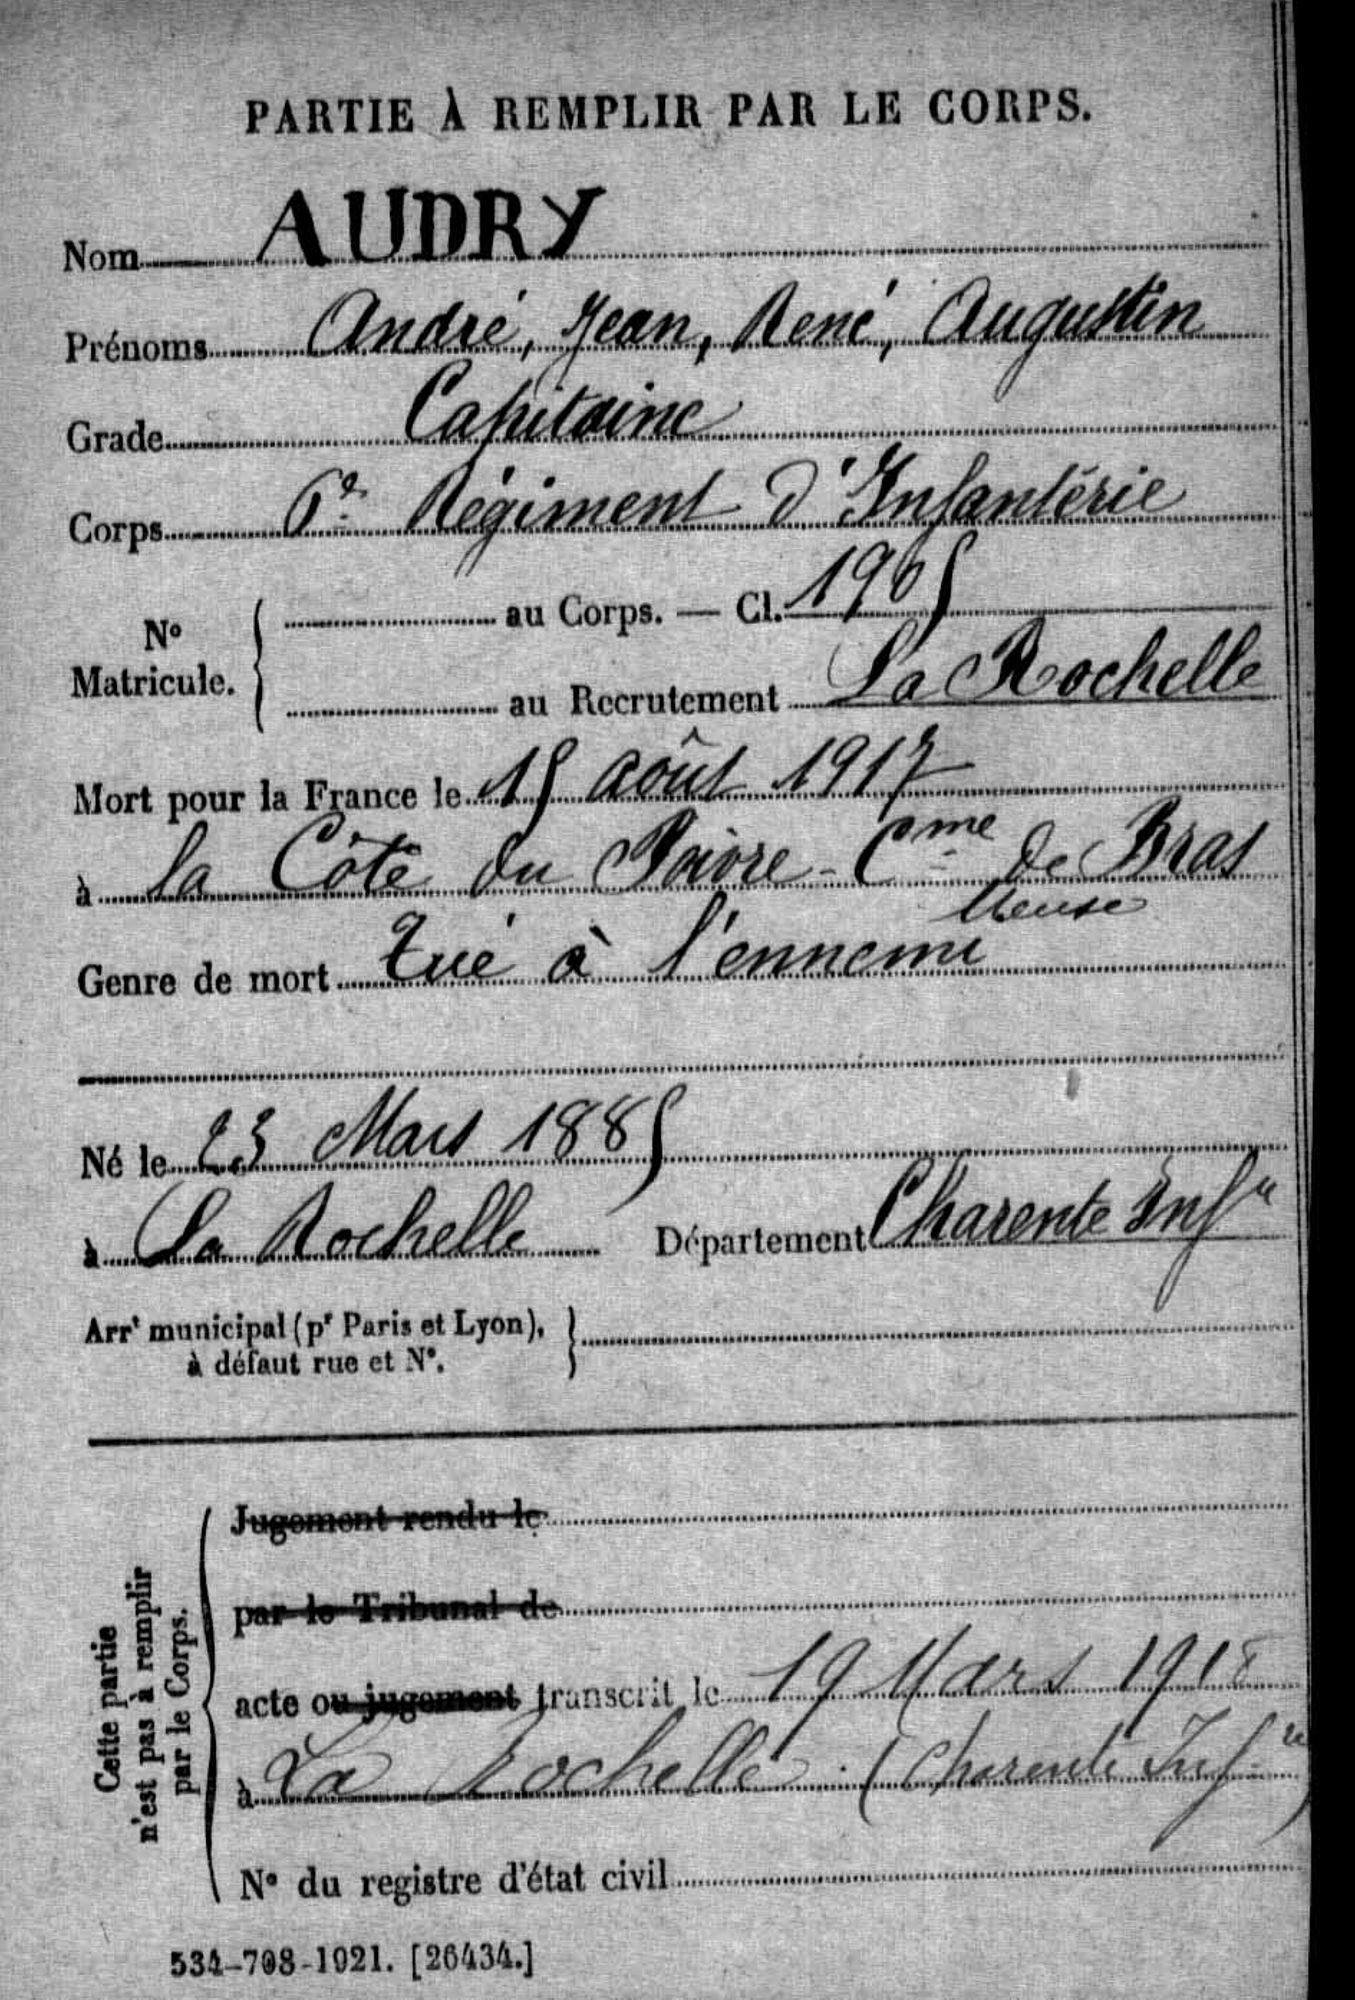 PARTIE À REMPLIR PAR LE CORPS.
Nom AUDRY
Prénoms André, Jean, René, Augustin
Grade Capitaine
Corps 6e Régiment d'Infantérie
N° Matricule. au Corps. — Cl. 1905
au Recrutement La Rochelle
Mort pour la France le 15 août 1917
à la Côte du Poivre - Cme de Bras
Meuse
Genre de mort Tué à l'ennemi
Né le 23 Mars 1885
à La Rochelle Département Charente Infre
Arrt municipal (pr Paris et Lyon),
à défaut rue et N°.
Cette partie
n'est pas à remplir
par le Corps.
Jugement rendu le
par le Tribunal de
acte ou jugement transcrit le 19 Mars 1918
à La Rochelle. (Charente Infre)
N° du registre d'état civil
534-708-1921. [26434.]